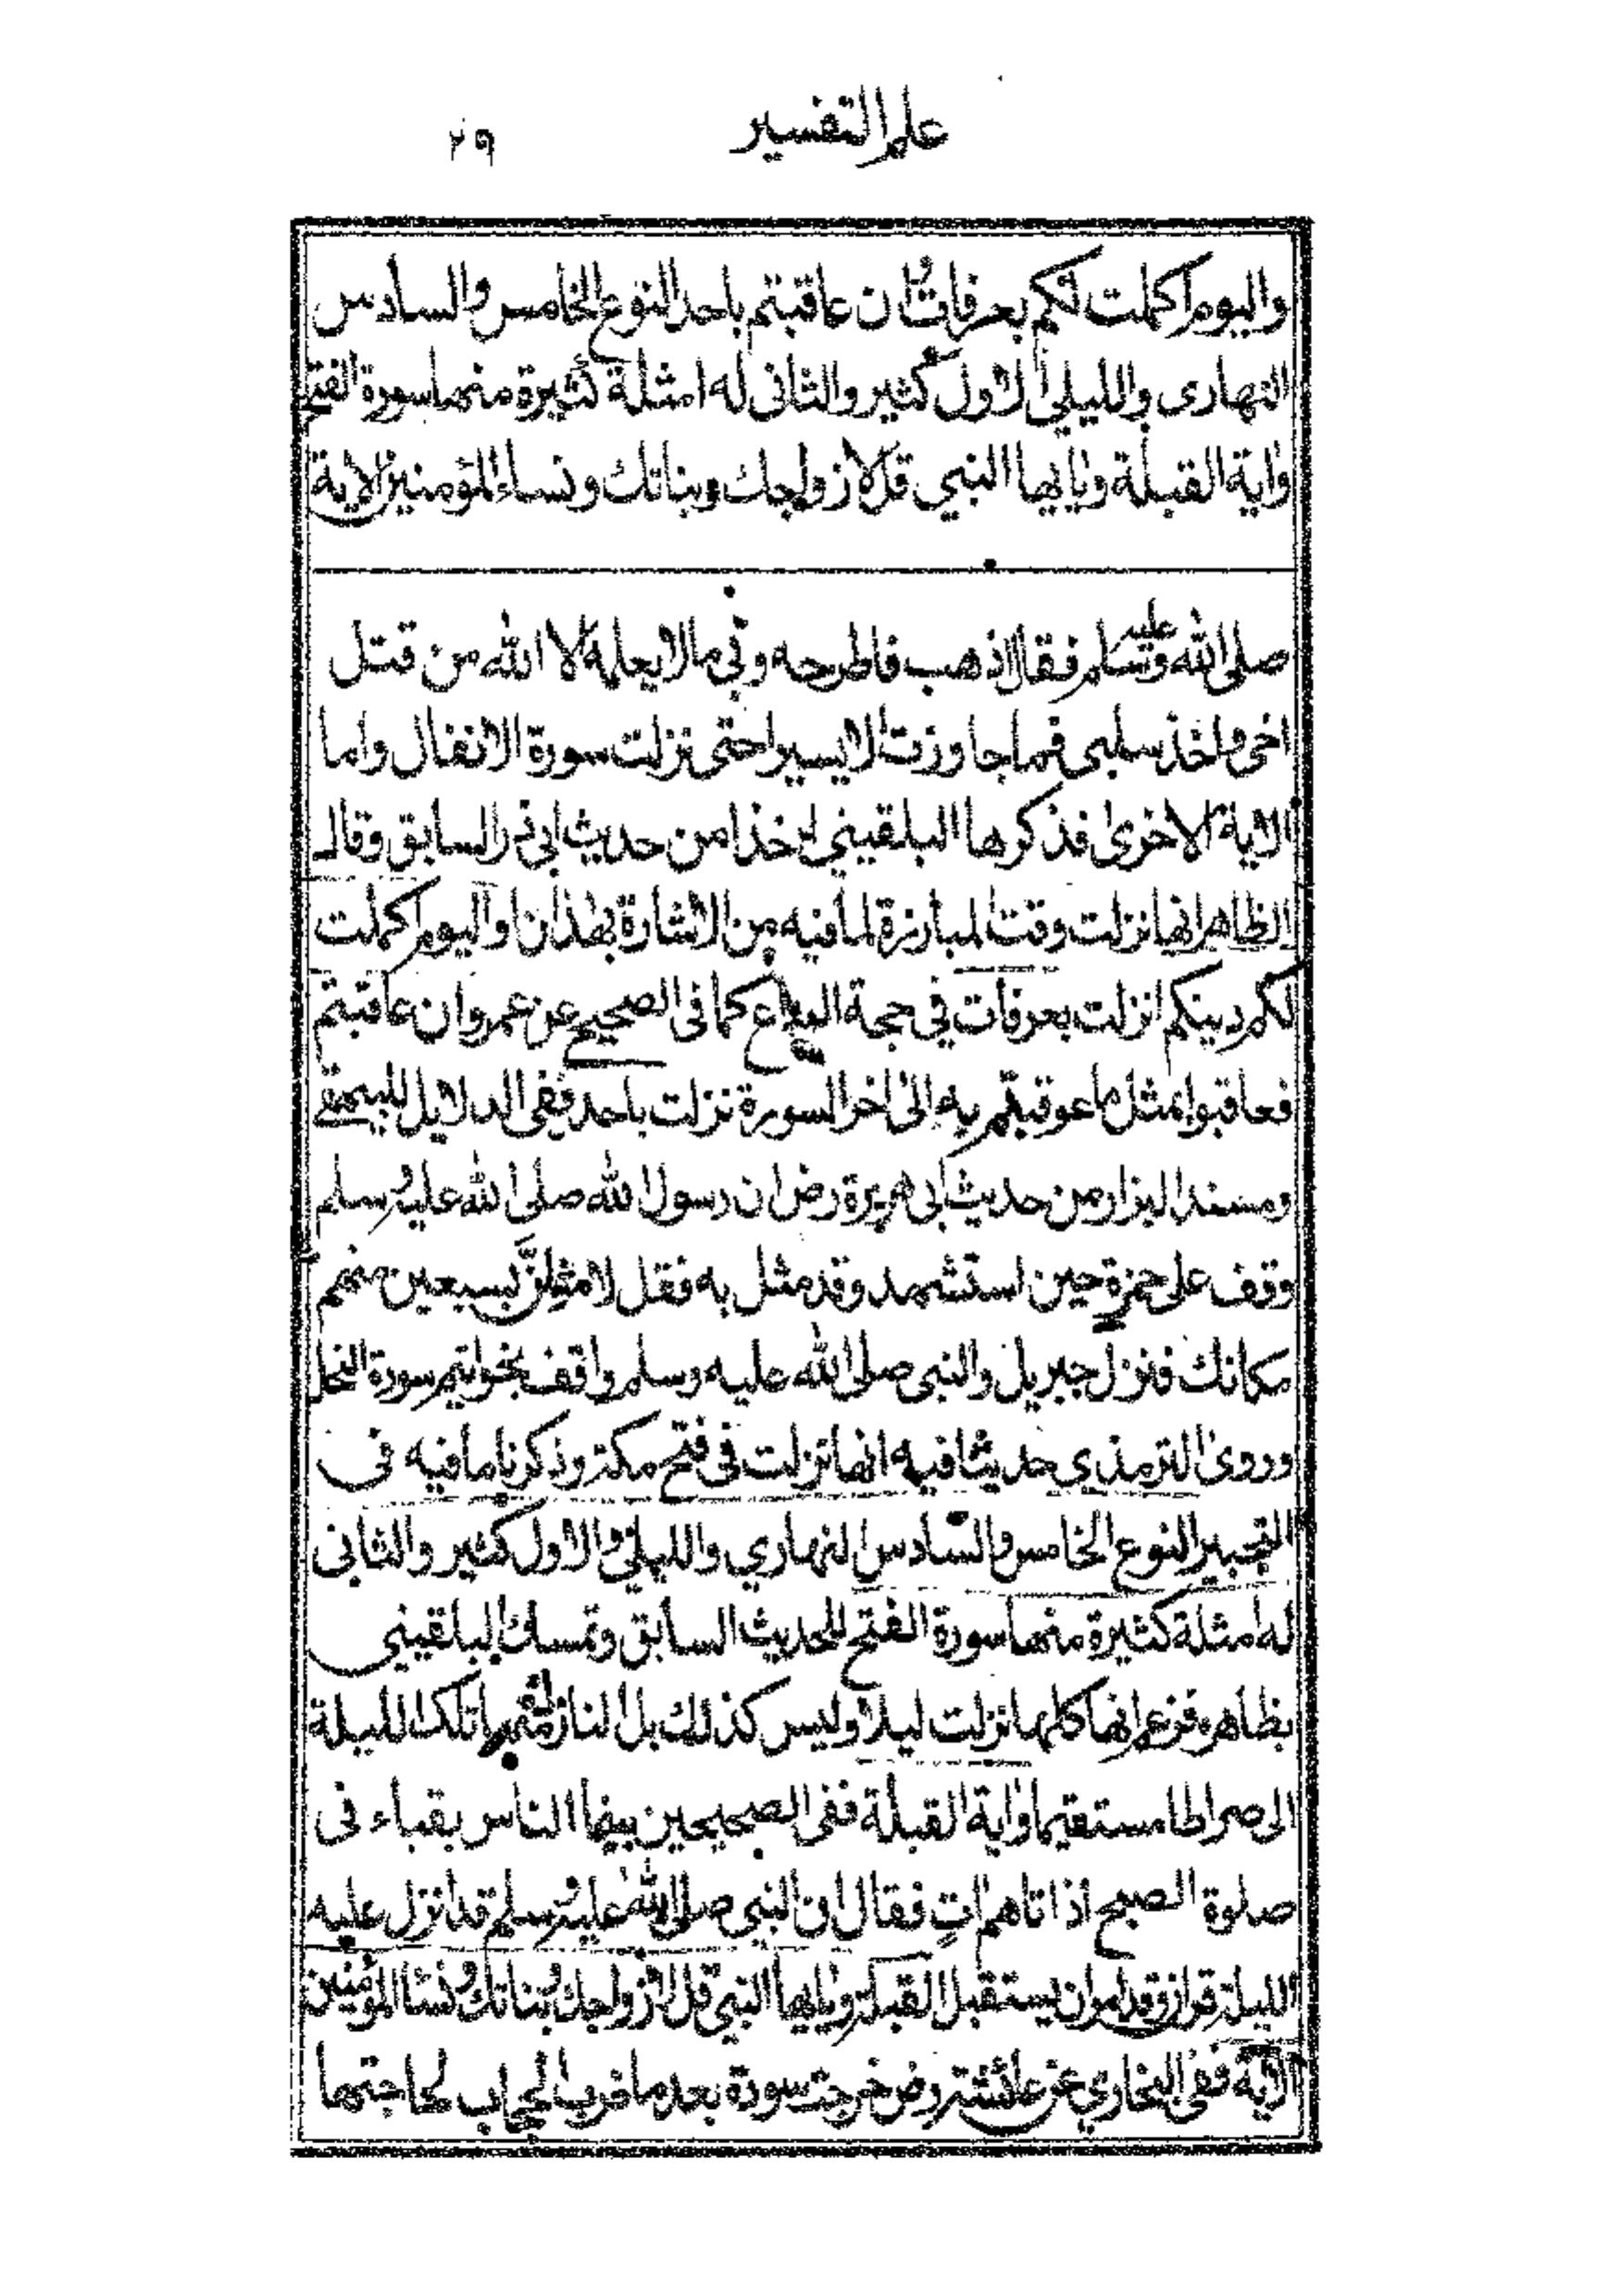 علم التفسير
٢٩
واليوم اكملت لكم بعرفات وان عاقبتم باحد النوع الخامس والسادس
النهارى والليلي الاول كثير والثانى له امثلة كثيرة منها سورة الفتح
واية القبلة ويايها النبي قل لازواجك وبناتك ونساء المؤمنين الاية
صلى الله عليه وسلم فقال اذهب فاطرحه وبي ما لا يعلمه الا الله من قتل
اخى واخذ سلبى فما جاوزت الا يسيرا حتى نزلت سورة الانفال واما
الاية الاخرى فذكرها البلقيني اخذا من حديث ابي ذر السابق وقال
الظاهر انها نزلت وقت المبارزة لما فيه من الاشارة بهذان واليوم اكملت
لكم دينكم انزلت بعرفات في حجة الوداع كما فى الصحيح عن عمر وان عاقبتم
فعاقبوا بمثل ما عوقبتم به الى اخر السورة نزلت باحد ففى الدلايل للبيهقى
ومسند البزار من حديث ابى هريرة رض ان رسول الله صلى الله عليه وسلم
وقف على حمزة حين استشهد وقد مثل به فقل لامثلنّ بسبعين منهم
مكانك فنزل جبريل والنبى صلى الله عليه وسلم واقف بخواتيم سورة النحل
وروى الترمذي حديثا فيه انها نزلت فى فتح مكة وذكرنا ما فيه فى
التحبير النوع الخامس والسادس النهاري والليلى والاول كثير والثانى
له امثلة كثيرة منها سورة الفتح للحديث السابق وتمسك البلقينى
بظاهره فزعم انها كلها نزلت ليلا وليس كذلك بل النازل منها تلك الليلة
الى صراطا مستقيما واية القبلة ففى الصحيحين بينما الناس بقباء فى
صلوة الصبح اذ اتاهم اتٍ فقال ان النبى صلى الله عليه وسلم قد انزل عليه
الليلة قران وقد امر ان يستقبل القبلة ويايها النبي قل لازواجك وبناتك ونساء المؤمنين
الاية ففى البخاري عن عائشة رض خرجت سودة بعد ما ضرب الحجاب لحاجتها